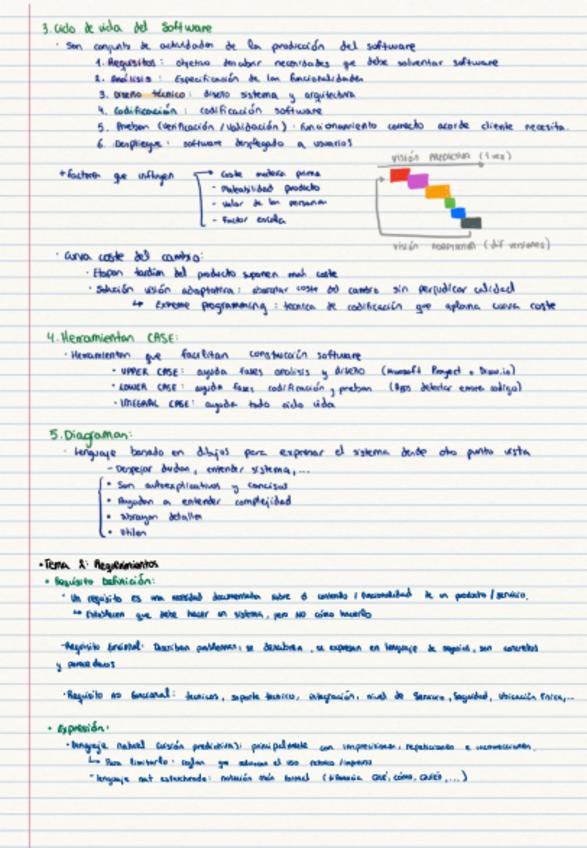 3. Ciclo de vida del Software
· Son conjunto de actividades de la producción del software
1. Requisitos: objetivo descubrir necesidades que debe solventar software
2. Análisis: Especificación de las funcionalidades
3. Diseño técnico: diseño sistema y arquitectura
4. Codificación: codificación software
5. Pruebas (Verificación / Validación): funcionamiento correcto acorde cliente necesita.
6. Despliegue: software desplegado a usuarios
visión PREDICTIVA (1 vez)
+ factores que influyen
- Coste materia prima
- Maleabilidad producto
- Valor de las personas
- Factor escala
visión ADAPTATIVA (dif versiones)
· Curva coste del cambio:
· Etapas tardías del producto suponen más coste
· Solución visión adaptativa: abaratar coste del cambio sin perjudicar calidad
↳ Extreme programming: técnica de codificación que aplana curva coste
4. Herramientas CASE:
· Herramientas que facilitan construcción software
· UPPER CASE: ayuda fases análisis y diseño (Microsoft Project o Draw.io)
· LOWER CASE: ayuda fases codificación y pruebas (Apps detectar errores código)
· INTEGRAL CASE: ayuda todo ciclo vida
5. Diagramas:
· Lenguaje basado en dibujos para expresar el sistema desde otro punto vista
- Despejar dudas, entender sistema,...
• Son autoexplicativos y concisos
• Ayudan a entender complejidad
• Subrayan detalles
• Útiles
• Tema 2: Requerimientos
• Requisito Definición:
· Un requisito es una necesidad documentada sobre el contenido / funcionalidad de un producto / servicio.
↳ Establecen que debe hacer un sistema, pero no cómo hacerlo
- Requisito funcional: Describen problemas, se descubren, se expresan en lenguaje de negocio, son concretos
y
· Requisito no funcional: técnicos, soporte técnico, integración, nivel de Servicio, Seguridad, Ubicación física,...
• Expresión:
· Lenguaje natural (visión predictiva): principalmente con imprecisiones, repeticiones e incorrecciones.
↳ Para limitarlo: reglas que el uso
- lenguaje nat estructurado: notación más formal ( QUÉ, CÓMO, QUIÉN,...)